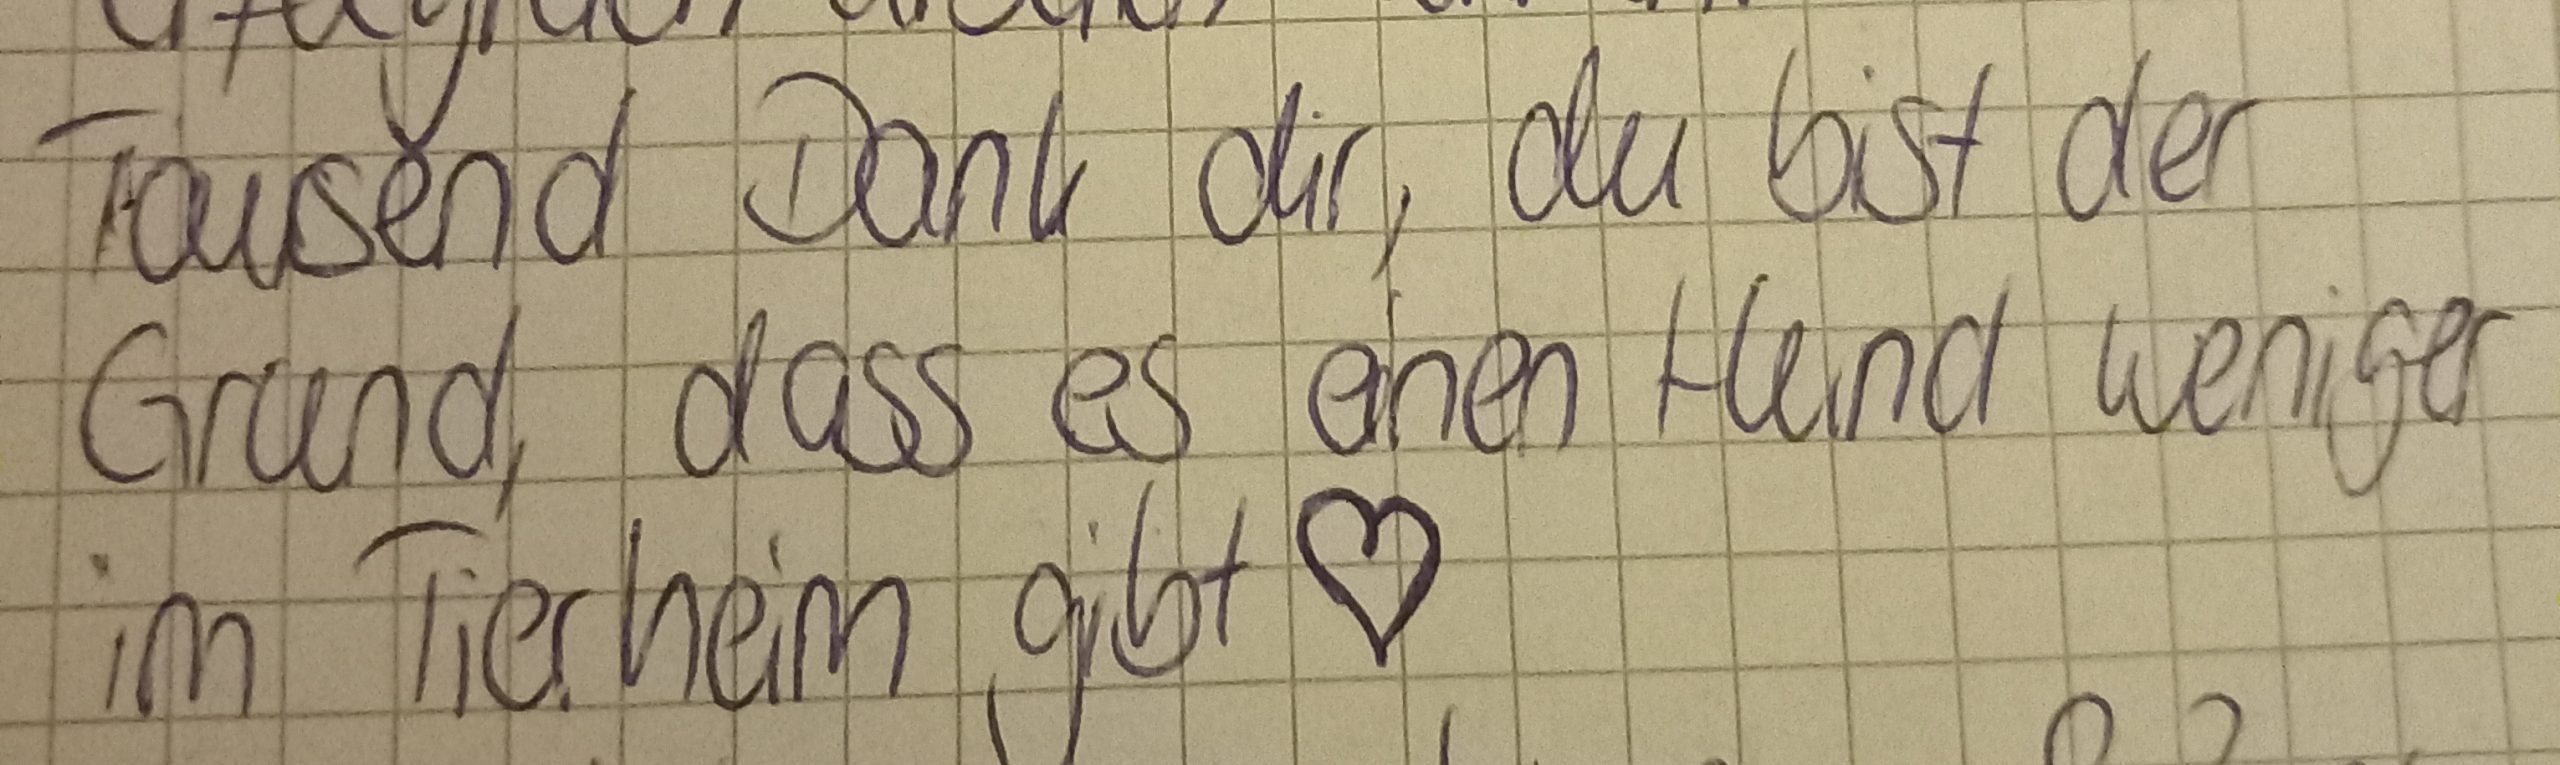 Tausend Dank dir, du bist der
Grund, dass es einen Hund weniger
im Tierheim gibt ♡